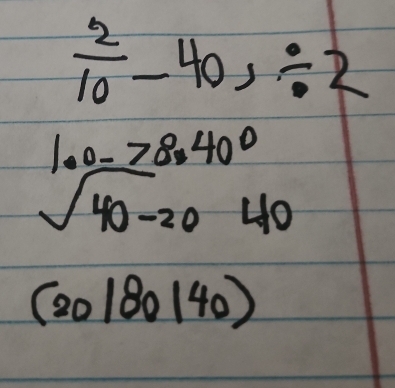 2/10 - 40, ÷ 2
1.0 - 78.40⁰
√40-20 40
(20|80|40)